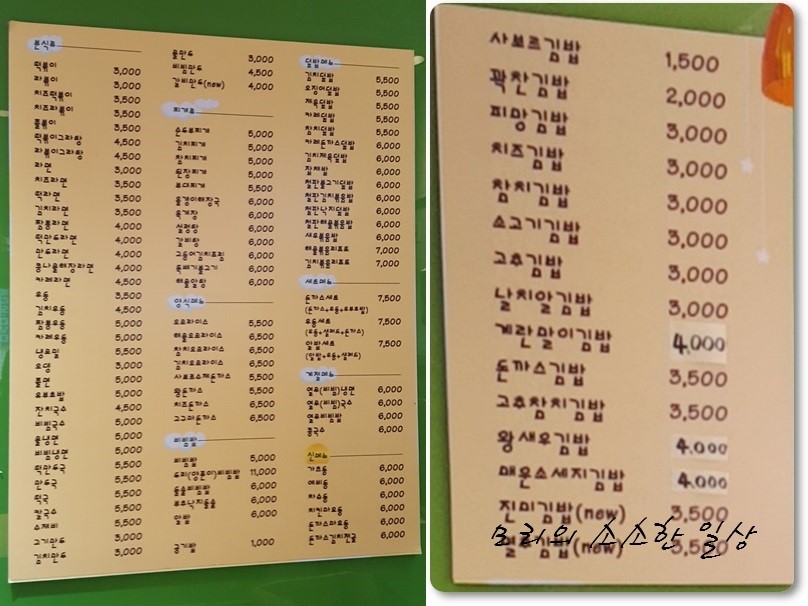 분식류
떡볶이 3,000
라볶이 3,000
치즈떡볶이 3,500
치즈라볶이 3,500
쫄볶이 3,500
떡볶이그라탕 4,500
라볶이그라탕 4,500
라면 3,000
치즈라면 3,500
떡라면 3,500
김치라면 3,500
짬뽕라면 4,000
떡만두라면 4,000
만두라면 4,000
콩나물해장라면 4,000
카레라면 4,500
우동 3,500
김치우동 4,500
짬뽕우동 5,000
카레우동 5,000
냉모밀 5,500
오뎅 3,000
쫄면 5,000
유부초밥
잔치국수 4,500
비빔국수 5,000
물냉면 5,000
비빔냉면 5,000
떡만두국 5,500
만두국 5,500
떡국 5,500
칼국수 5,500
수제비 5,500
고기만두 3,000
김치만두 3,000
물만두 3,000
비빔만두 4,500
갈비만두(new) 4,000
찌개류
순두부찌개 5,000
김치찌개 5,000
참치찌개 5,000
된장찌개 5,000
부대찌개 5,500
올갱이해장국 6,000
육개장 6,000
설렁탕 6,000
갈비탕 6,000
고등어김치조림 6,000
뚝배기불고기 6,000
해물알탕 6,000
양식메뉴
오므라이스 5,500
해물오므라이스 6,500
참치오므라이스 6,500
김치오므라이스 6,500
사보르수제돈까스 5,500
왕돈까스 6,500
치즈돈까스 6,500
고구마돈까스 6,500
비빔밥
비빔밥 5,000
도리(양푼이)비빔밥 11,000
돌솥비빔밥 6,000
부추낙지돌솥 6,000
알밥 6,000
공기밥 1,000
덮밥메뉴
김치덮밥 5,500
오징어덮밥 5,500
제육덮밥 5,500
카레덮밥 5,500
참치덮밥 5,500
카레돈까스덮밥 6,000
김치제육덮밥 6,000
잡채밥 6,000
철판불고기덮밥 6,000
철판김치볶음밥 6,000
철판낙지덮밥 6,000
철판해물볶음밥 6,000
새우볶음밥 6,000
해물볶음리조또 7,000
김치볶음리조또 7,000
세트메뉴
돈까스세트 7,500
(돈까스+우동+유부초밥)
우동세트 7,500
(우동+샐러드+돈까스)
알밥세트 7,500
(알밥+우동+샐러드)
계절메뉴
열무(비빔)냉면 6,000
열무(비빔)국수 6,000
열무비빔밥 6,000
콩국수 6,000
신메뉴
가츠동 6,000
에비동 6,000
차슈동 6,000
치킨마요동 6,000
돈까스마요동 6,000
돈까스김치전골 6,000
사보르김밥 1,500
꽉찬김밥 2,000
피망김밥 3,000
치즈김밥 3,000
참치김밥 3,000
소고기김밥 3,000
고추김밥 3,000
날치알김밥 3,000
계란말이김밥 4,000
돈까스김밥 3,500
고추참치김밥 3,500
왕새우김밥 4,000
매운소세지김밥 4,000
진미김밥(new) 3,500
열무김밥(new) 3,500
모리의 소소한 일상